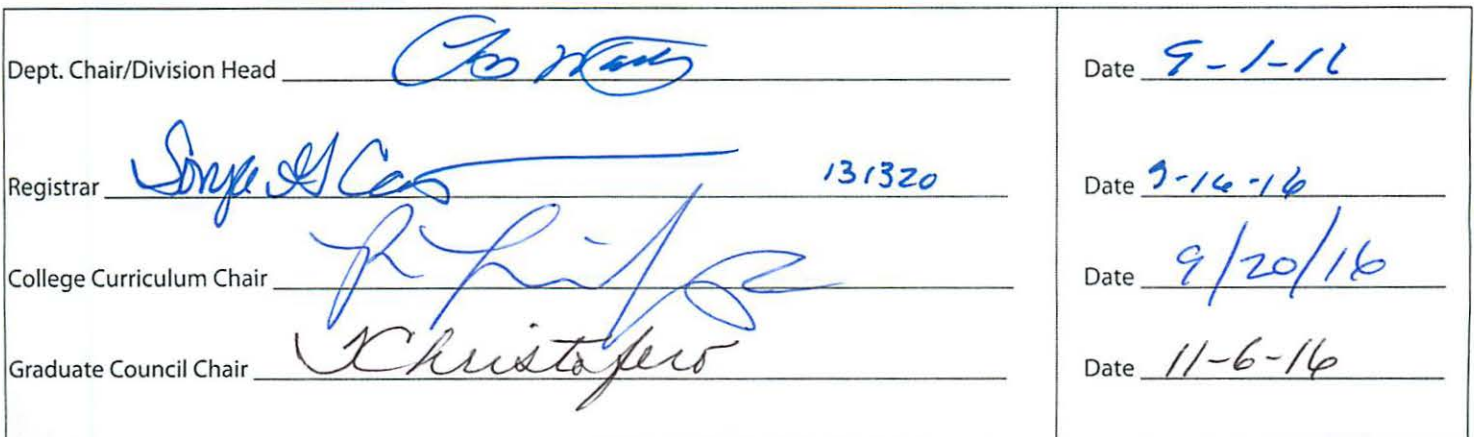 Dept. Chair/Division Head Date 9-1-16
Registrar 131320 Date 9-16-16
College Curriculum Chair Date 9/20/16
Graduate Council Chair Christofero Date 11-6-16